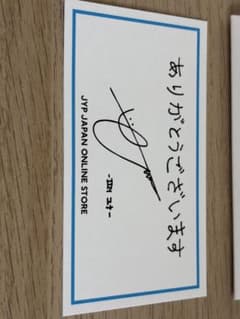 ありがとうございます
JYP JAPAN ONLINE STORE